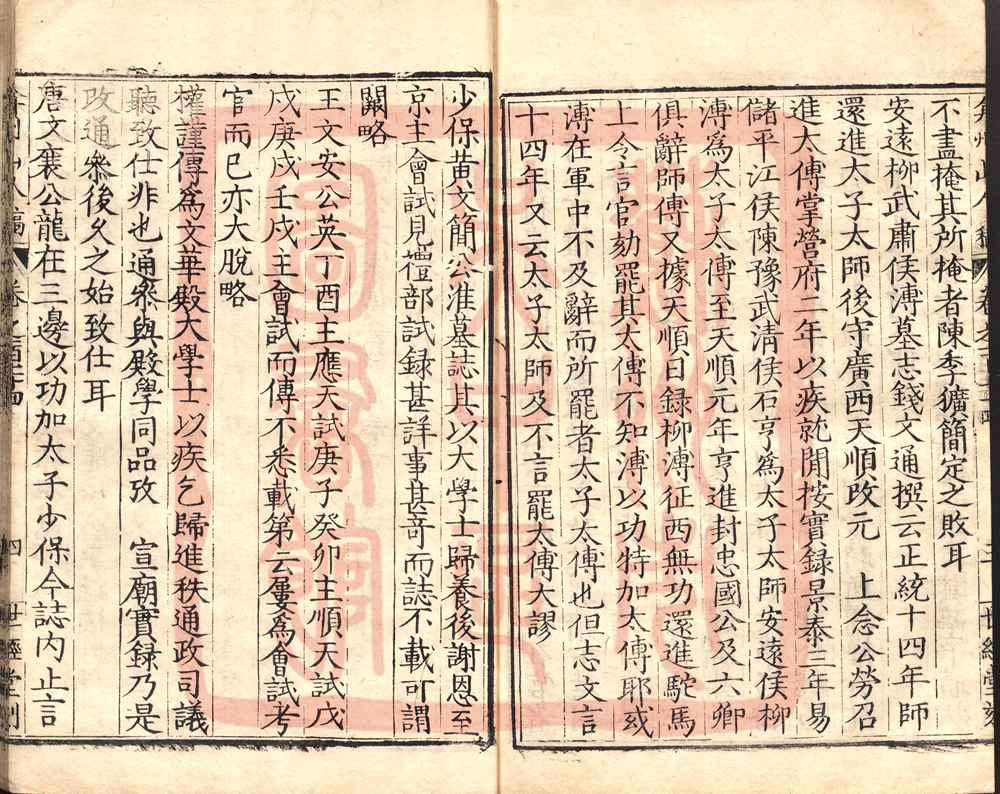 弇州山人稿 卷之
世經堂刻
不盡掩其所掩者陳季獷簡定之敗耳
安遠柳武肅侯溥墓志錢文通撰云正統十四年師
還進太子太師後守廣西天順改元 上念公勞召
進太傅掌營府二年以疾就閒按實録景泰三年易
儲平江侯陳豫武清侯石亨爲太子太師安遠侯柳
溥爲太子太傅至天順元年亨進封忠國公及六卿
俱辭師傅又據天順日録柳溥征西無功還進駝馬
上令言官劾罷其太傅不知溥以功特加太傅耶或
溥在軍中不及辭而所罷者太子太傅也但志文言
十四年又云太子太師及不言罷太傅大謬
少保黄文簡公淮墓誌其以大學士歸養後謝恩至
京主會試見禮部試録甚詳事甚竒而誌不載可謂
闕略
王文安公英丁酉主應天試庚子癸卯主順天試戊
戌庚戌壬戌主會試而傳不悉載第云屢爲會試考
官而已亦大脫略
權謹傳爲文華殿大學士以疾乞歸進秩通政司議
聽致仕非也通叅與殿學同品攷 宣廟實録乃是
改通叅後久之始致仕耳
唐文襄公龍在三邊以功加太子少保今誌内止言
四
世經堂刻